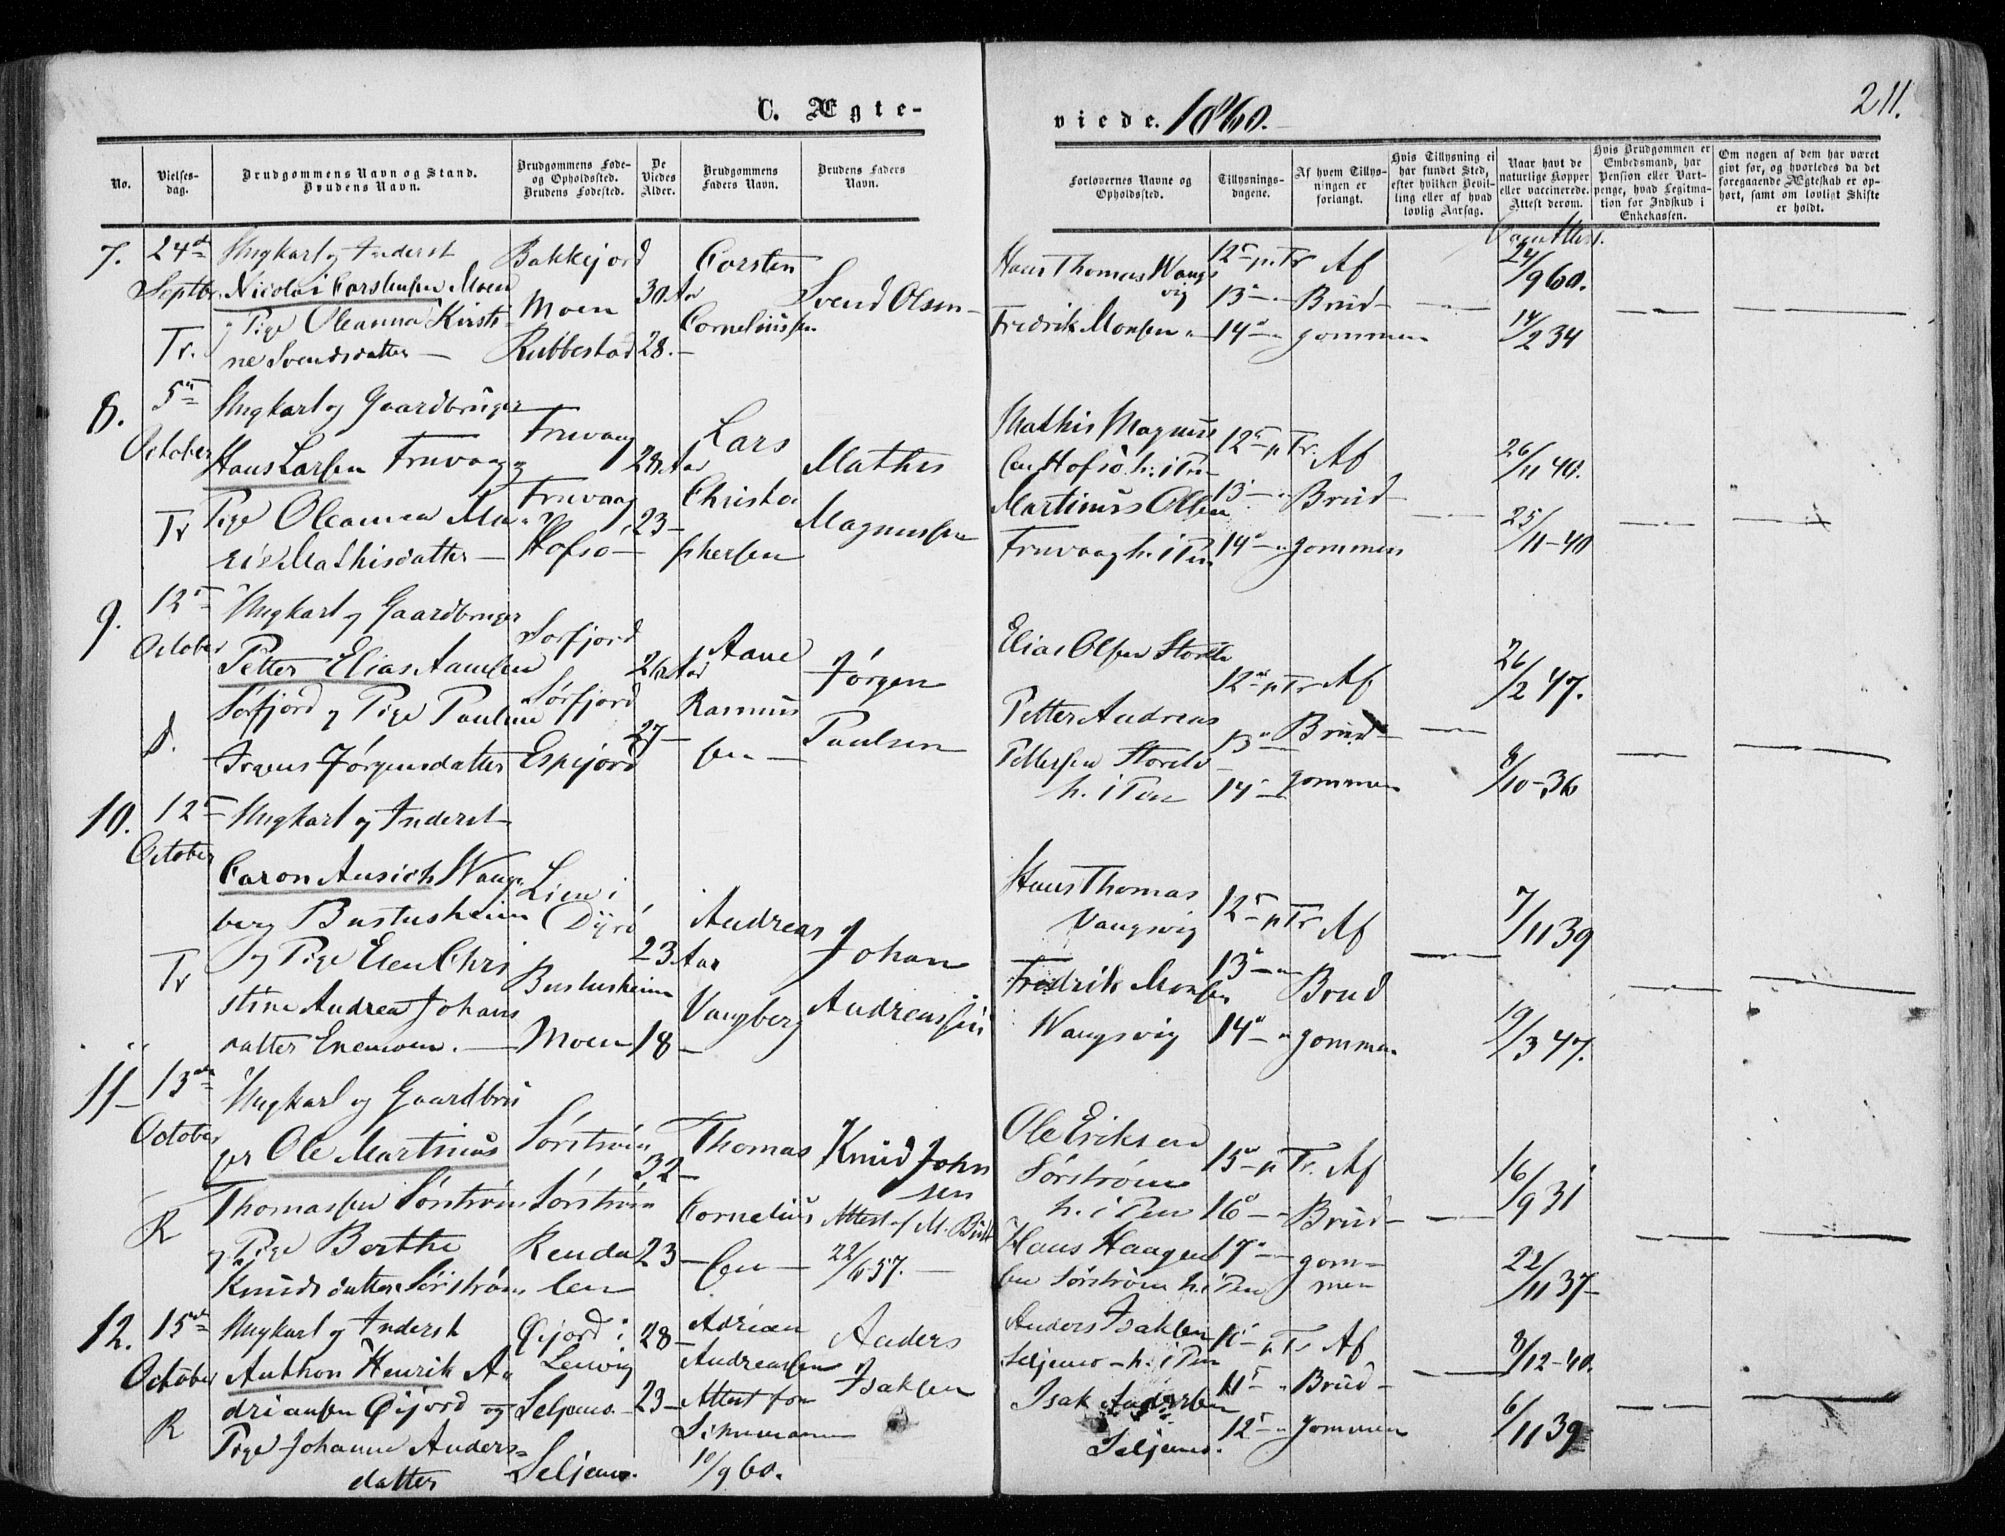 211.
C. Ægte-
viede. 1860.
No.
Vielses-
dag.
Brudgommens Navn og Stand.
Brudens Navn.
Brudgommens Føde-
og Opholdssted.
Brudens Fødested.
De
Viedes
Alder.
Brudgommens
Faders Navn.
Brudens Faders
Navn.
Forlovernes Navne og
Opholdssted.
Tillysnings-
dagene.
Af hvem Tillys-
ningen er
forlangt.
Hvis Tillysning ei
har fundet Sted,
efter hvilken Bevil-
ling eller af hvad
lovlig Aarsag.
Naar havt de
naturlige Kopper
eller vaccinerede.
Attest derom.
Hvis Brudgommen er
Embedsmand, har
Pension eller Vart-
penge, hvad Legitima-
tion for Indskud i
Enkekassen.
Om nogen af dem har været
givt før, og hvorledes da det
foregaaende Ægteskab er op-
hørt, samt om lovligt Skifte
er holdt.
7.
24de
Septbr
Tr.
Ungkarl og Inderst
Nicolai Carstensen Moen
og Pige Oleanna Kirsti-
ne Svendsdatter
Bakkejord
Moen
Rubbestad
30 Aar
28.
Carsten
Corneliussen
Svend Olsen
Hans Thomas Wangs
vig
Fredrik Monsen
12 p. Tr
13
14
Af
Brud-
gommen
24/9 60.
14/2 34
8.
5te
October
Tr
Ungkarl og Gaardbruger
Hans Larsen Truvaag og
Pige Oleanna Ma-
rie Mathisdatter
Truvaag
Truvaag
Hofsø
28 Aar
23
Lars
Christo
phersen
Mathis
Magnussen
Mathis Magnus
sen Hofsø h. i Pen
Martinus Olsen
Truvaag h. i Pen
12 p Tr.
13
14
Af
Brud
gommen
26/11 40.
25/11-40
9.
12te
October
Ungkarl og Gaardbruger
Petter Elias Aansen
Sørfjord og Pige Pauline
Jørgensdatter
Sørfjord
Sørfjord
Espejord
26 Aar
27
Aane
Rasmus
sen
Jørgen
Paulsen
Elias Olsen
Petter Andreas
Pettersen
h. i Pen
12 p Tr
13
14
Af
Brud-
gommen
26/2 47.
8/10-36
10.
12te
October
Tr
Ungkarl og Inderst
Caron Ansich Wang
berg Bustusheim
og Pige Elen Chri
stine Andrea Johans
datter Enemoen.
Lien i
Dyrø
Bustusheim
Moen
23 Aar
18
Andreas
Vangberg
Johan
Andreassen
Hans Thomas
Vangsvig
Fredrik Monsen
Wangsvig
12 p Tr
13
14
Af
Brud
gommen
7/11 39
19/3 47.
11
13de
October
R
Ungkarl og Gaardbru
ger Ole Martinus
Thomassen Sørstrøm
og Pige Berthe
Knudsdatter Sørstrøm
Sørstrøm
Sørstrøm
Renda
len
32
23
Thomas
Cornelius
sen
Knud John
sen
Attest af M.
22/6 57.
Ole Eriksen
Sørstrøm
h. i Pen
Hans Haagen
sen Sørstrøm h. i Pen
15 p Tr.
16
17
Af
Brud-
gom-
men
16/9 31
22/11 37
12.
15de
October
R
Ungkarl og Inderst
Anthon Henrik A-
driansen Øijord og
Pige Johanne Anders-
datter
Øijord i
Lenvig
Seljemo
Seljemo.
28
23
Adrian
Andreassen
Attest fra
10/9 60.
Anders
Isaksen
Anders Isaksen
Seljemo h. i Pen
Isak Andersen
Seljemo.
10 p Tr
11
12
Af
Brud-
gommen
8/12-40.
6/11 39